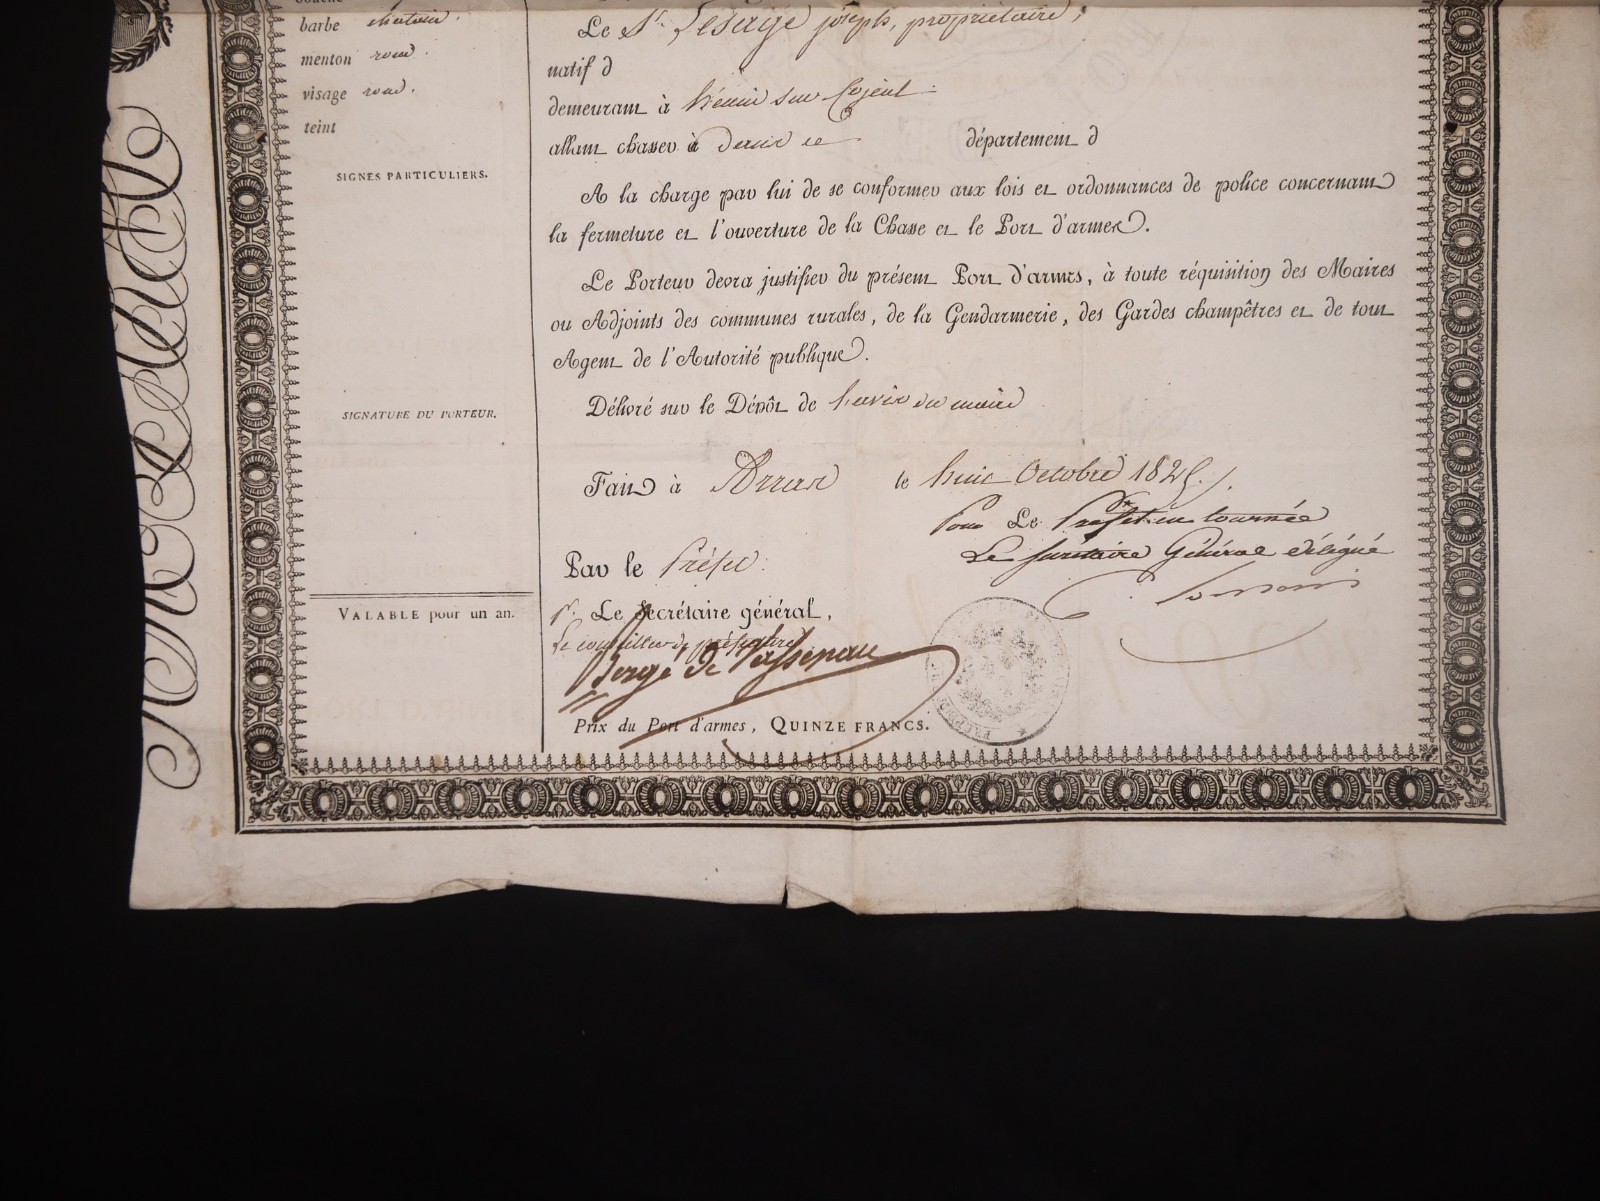 barbe chatain.
menton rond.
visage rond.
teint
SIGNES PARTICULIERS.
SIGNATURE DU PORTEUR.
VALABLE pour un an.
Le Sr. Lesage joseph, propriétaire,
natif d
demeurant à hénin sur Cojeul
allant chasser à département d
A la charge par lui de se conformer aux lois et ordonnances de police concernant
la fermeture et l'ouverture de la Chasse et le Port d'armes.
Le Porteur devra justifier du présent Port d'armes, à toute réquisition des Maires
ou Adjoints des communes rurales, de la Gendarmerie, des Gardes champêtres et de tout
Agent de l'Autorité publique.
Délivré sur le Dépôt de l'avis du maire
Fait à Arras le huit Octobre 1825.
Pour Le Préfet en tournée
Le secrétaire Général délégué
Par le Préfet:
pr. Le Secrétaire général,
Le conseiller de préfecture
Prix du Port d'armes, QUINZE FRANCS.